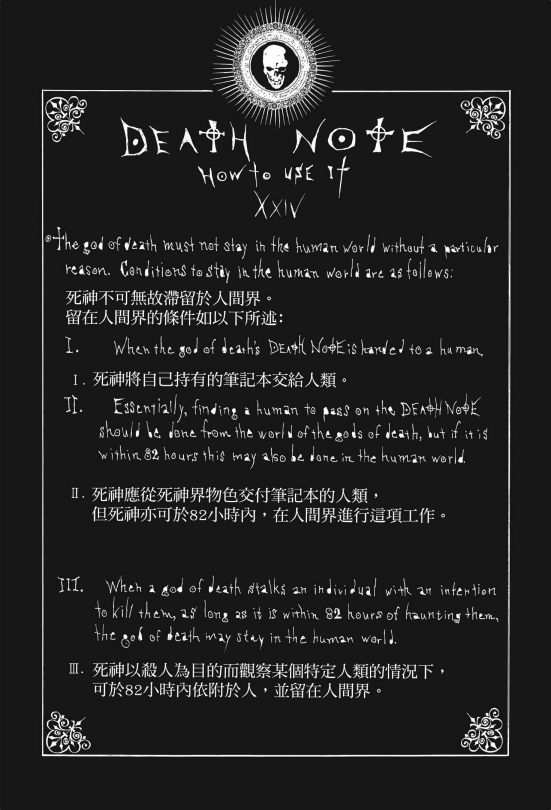 DEATH NOTE
HOW to USE It
XXIV
The god of death must not stay in the human world without a particular
reason. Conditions to stay in the human world are as follows:
死神不可無故滯留於人間界。
留在人間界的條件如以下所述：
I. When the god of death's DEATH NOTE is handed to a human.
I. 死神將自己持有的筆記本交給人類。
II. Essentially, finding a human to pass on the DEATH NOTE
should be done from the world of the gods of death, but if it is
within 82 hours this may also be done in the human world.
II. 死神應從死神界物色交付筆記本的人類，
但死神亦可於82小時內，在人間界進行這項工作。
III. When a god of death stalks an individual with an intention
to kill them, as long as it is within 82 hours of haunting them,
the god of death may stay in the human world.
III. 死神以殺人為目的而觀察某個特定人類的情況下，
可於82小時內依附於人，並留在人間界。